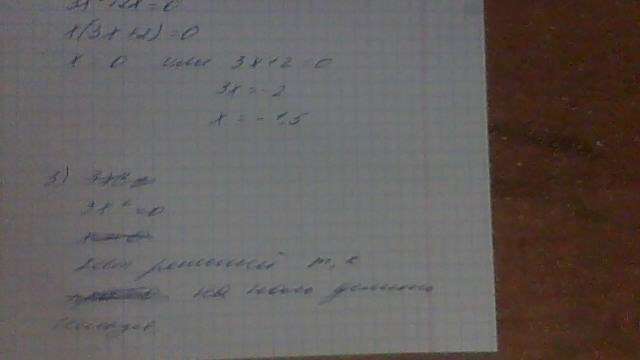 3x²+2x=0
x(3x+2)=0
x = 0 или 3x+2=0
3x=-2
x = -1,5
3)
3x²=0
x=0
нет решений т.к
на ноль делить
нельзя